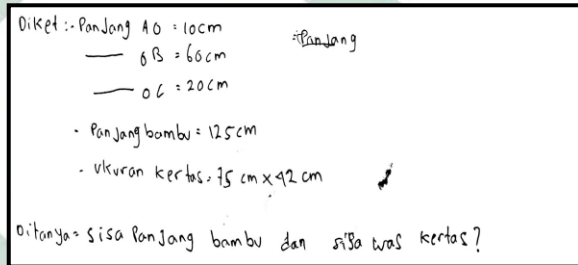 Diket :- Panjang AO : 10cm
— OB = 60cm
— OC : 20cm
Panjang
- Panjang bambu = 125cm
- Ukuran kertas = 75 cm x 42 cm
Ditanya = sisa Panjang bambu dan sisa luas kertas?